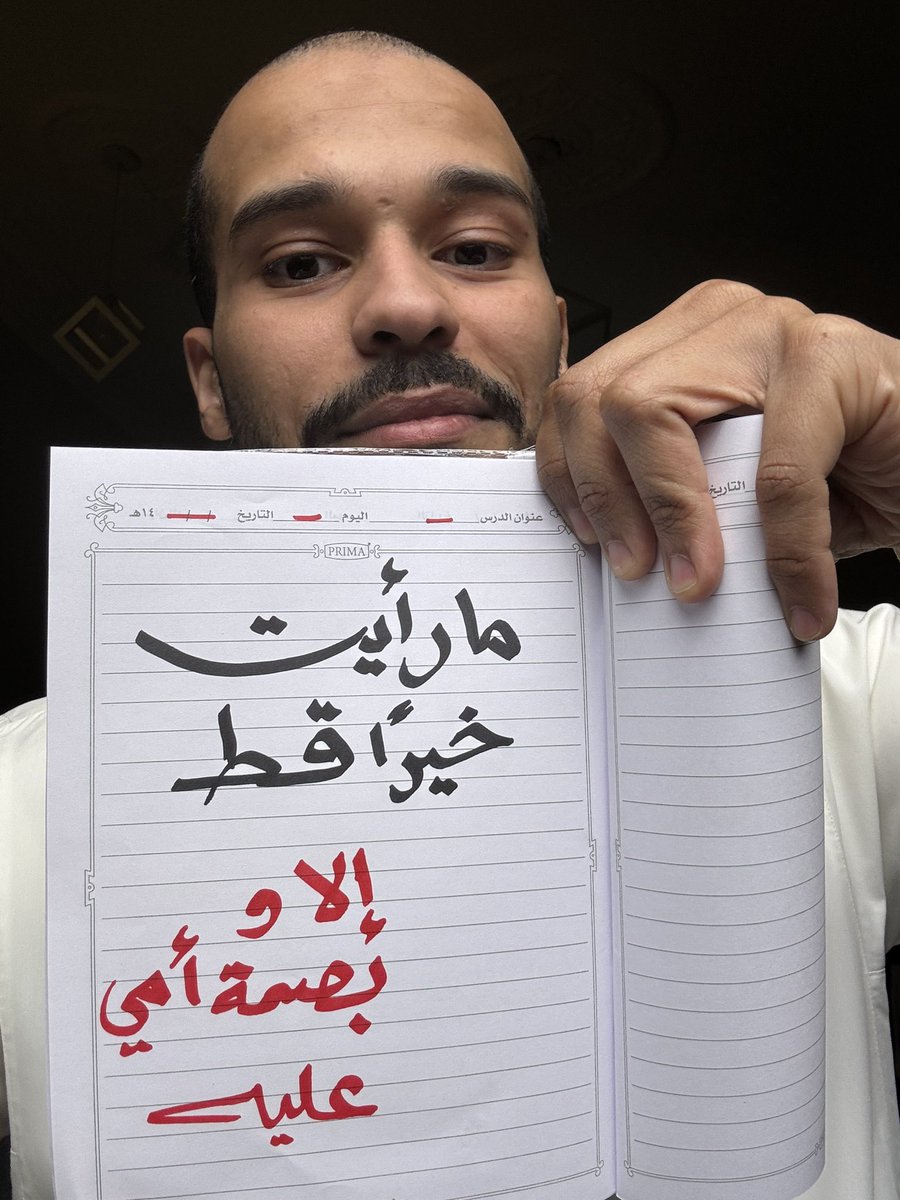 عنوان الدرس اليوم التاريخ / / ١٤هـ
التاريخ
PRIMA
ما رأيت
خيرًا قط
إلا و
بصمة أمي
عليه